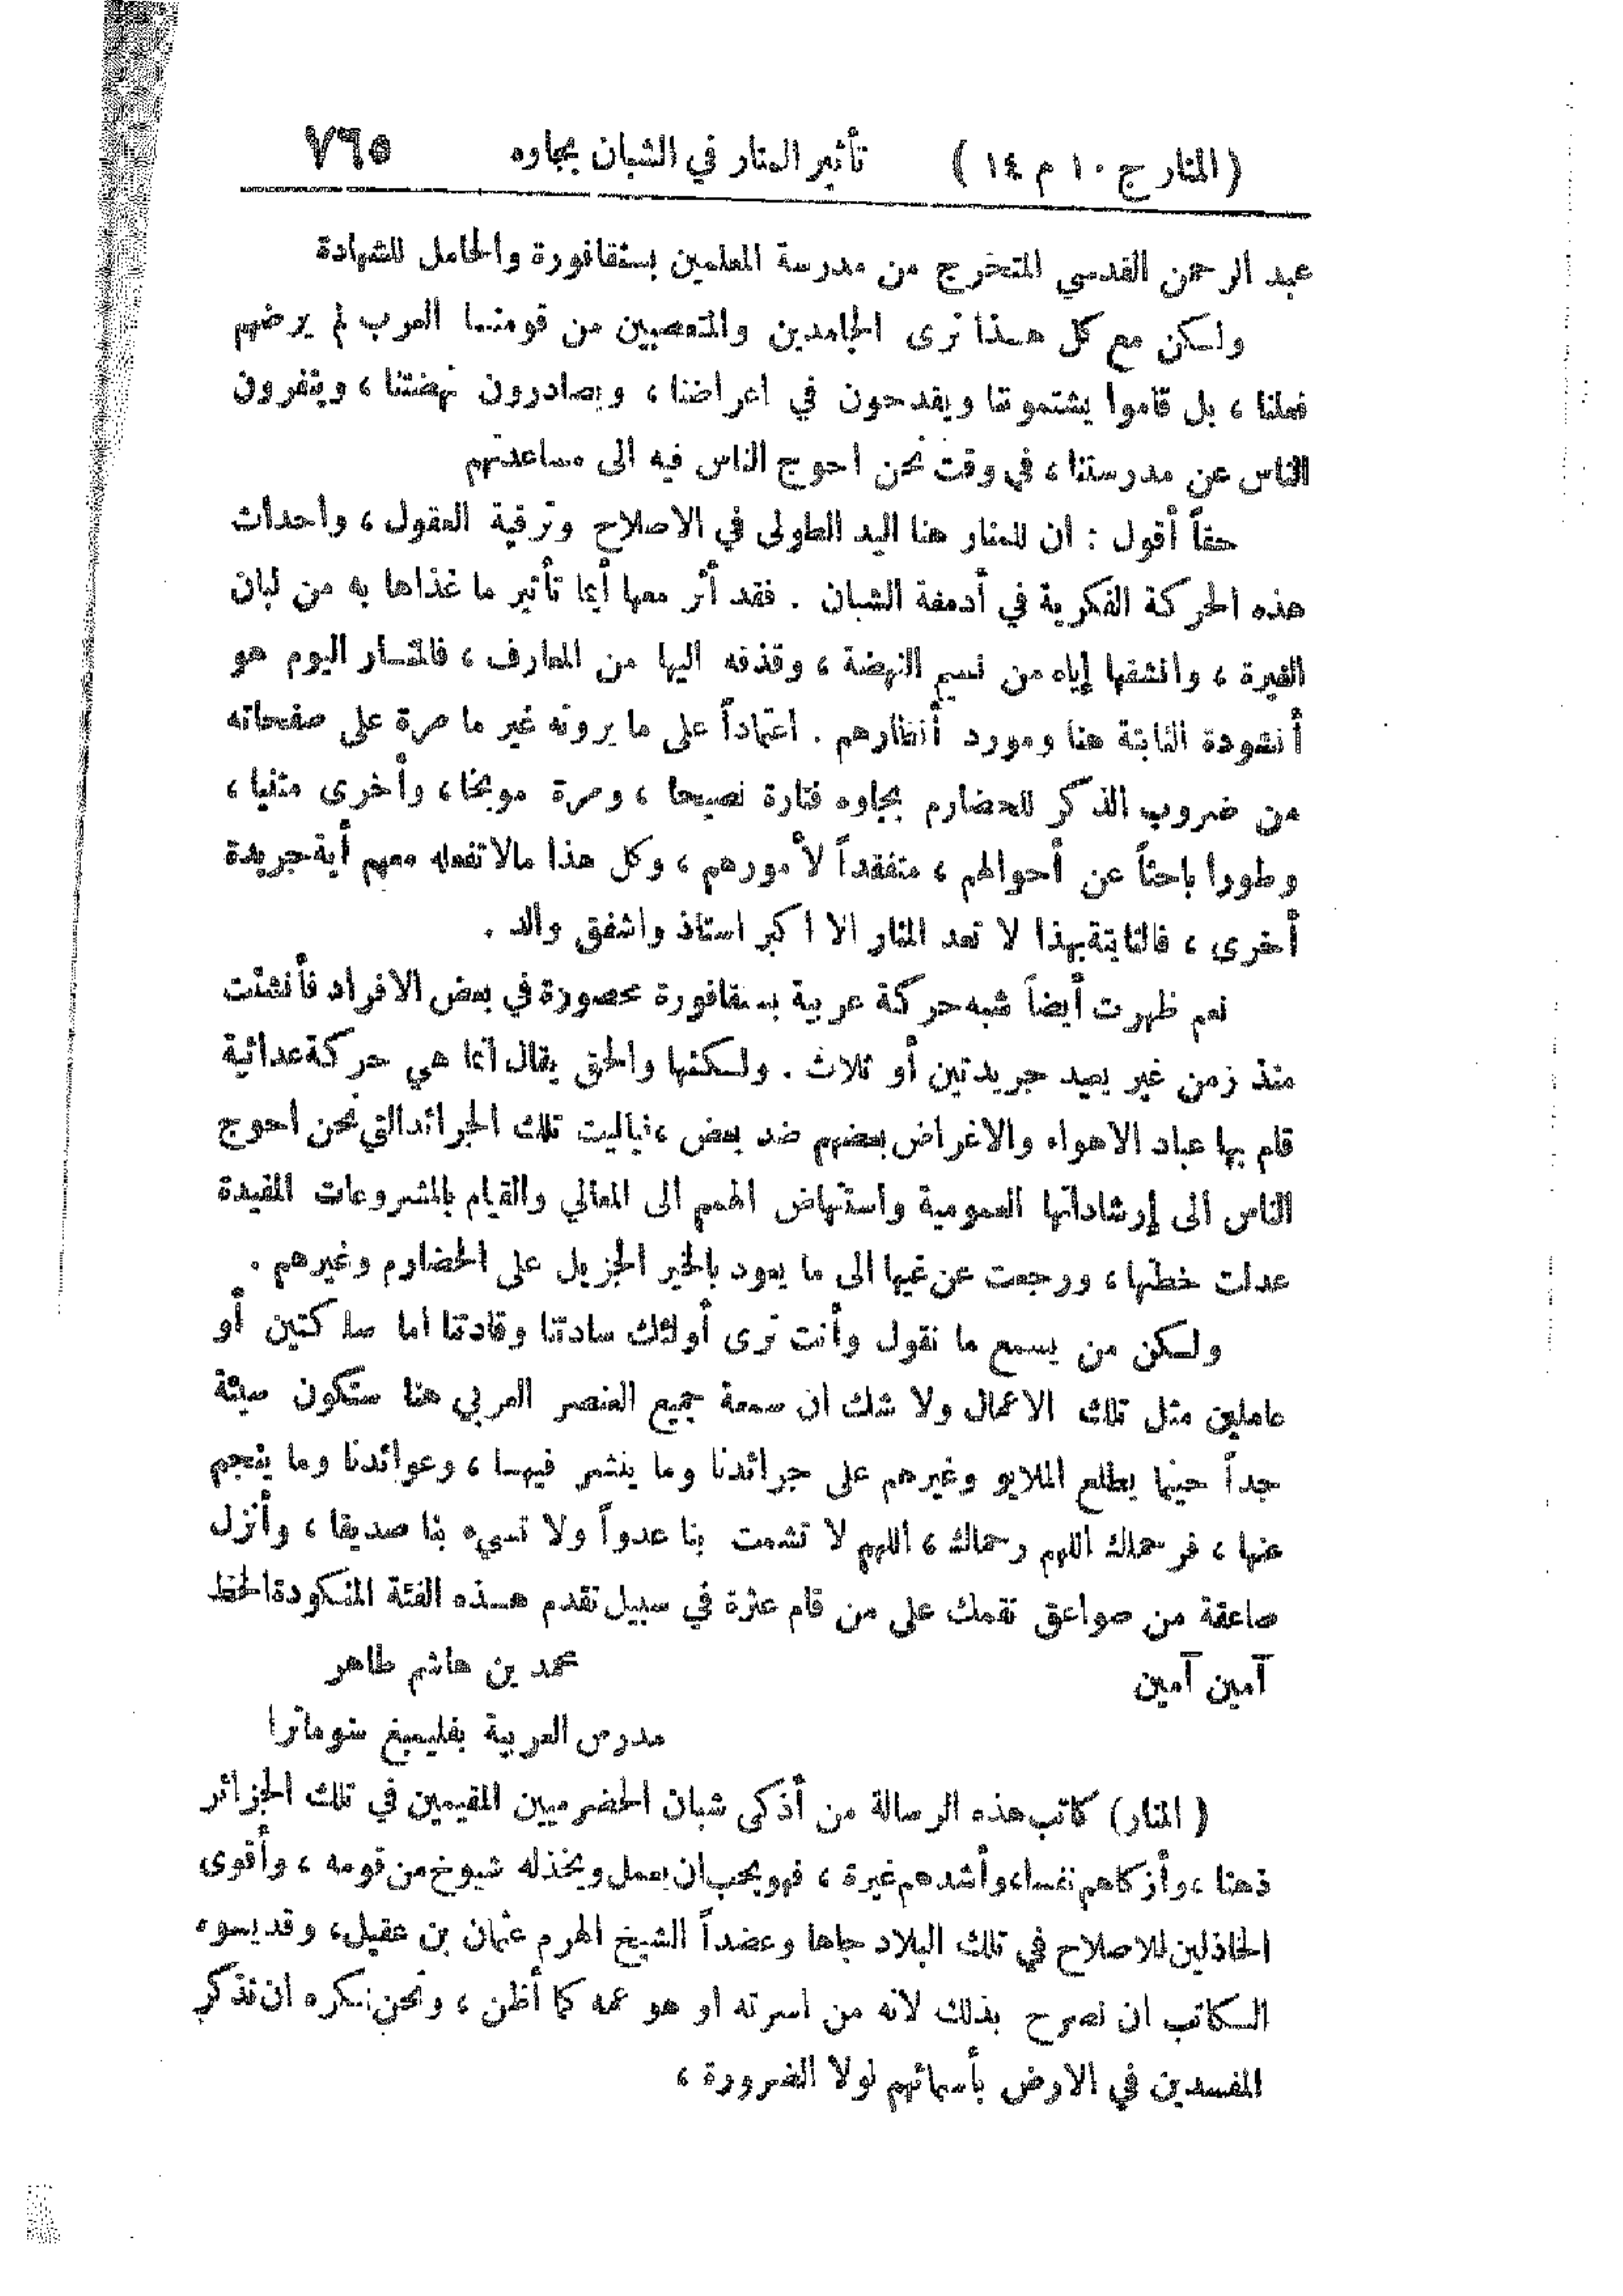 (المنار ج ١٠ م ١٤) تأثير المنار في الشبان بجاوه ٧٦٥
عبد الرحمن القدسي المتخرج من مدرسة المعلمين بسنقافورة والحامل للشهادة
ولكن مع كل هذا نرى الجامدين والمتعصبين من قومنا العرب لم يرضهم
فعلنا ، بل قاموا يشتموننا ويقدحون في اعراضنا ، ويصادرون نهضتنا ، وينفرون
الناس عن مدرستنا ، في وقت نحن احوج الناس فيه الى مساعدتهم
حقاً أقول : ان للمنار هنا اليد الطولى في الاصلاح وترقية العقول ، واحداث
هذه الحركة الفكرية في أدمغة الشبان . فقد أثر معها أيما تأثير ما غذاها به من لبان
الغيرة ، وانشقها إياه من نسيم النهضة ، وقذفه اليها من المعارف ، فالمنار اليوم هو
أنشودة النابتة هنا ومورد أنظارهم . اعتماداً على ما يرونه غير ما مرة على صفحاته
من ضروب الذكر للحضارم بجاوه فتارة نصيحا ، ومرة موبخا ، وأخرى مثنيا ،
وطورا باحثاً عن أحوالهم ، متفقداً لأمورهم ، وكل هذا مالا تفعله معهم أية جريدة
أخرى ، فالنابتة بهذا لا تعد المنار الا اكبر استاذ واشفق والد .
نعم ظهرت أيضاً شبه حركة عربية بسنقافورة محصورة في بعض الافراد فأنشئت
منذ زمن غير بعيد جريدتين أو ثلاث . ولكنها والحق يقال انما هي حركة عدائية
قام بها عباد الاهواء والاغراض بعضهم ضد بعض ، فياليت تلك الجرائد التي نحن احوج
الناس الى إرشاداتها العمومية واستنهاض الهمم الى المعالي والقيام بالمشروعات المفيدة
عدلت خطتها ، ورجعت عن غيها الى ما يعود بالخير الجزيل على الحضارم وغيرهم .
ولكن من يسمع ما نقول وأنت ترى أولئك سادتنا وقادتنا اما ساكتين أو
عاملين مثل تلك الاعمال ولا شك ان سمعة جميع العنصر العربي هنا ستكون سيئة
جداً حينما يطلع الملايو وغيرهم على جرائدنا وما ينشر فيها ، وعوائدنا وما ينجم
عنها ، فرحماك اللهم رحماك ، اللهم لا تشمت بنا عدواً ولا تسيء بنا صديقا ، وأنزل
صاعقة من صواعق نقمك على من قام عثرة في سبيل تقدم هذه الفئة المنكودة الحظ
آمين آمين محمد بن هاشم طاهر
مدرس العربية بفليمبغ سوماترا
( المنار) كاتب هذه الرسالة من أذكى شبان الحضرميين المقيمين في تلك الجزائر
ذهنا ، وأزكاهم نفسا، وأشدهم غيرة ، فهو يحب ان يعمل ويخذله شيوخ من قومه ، وأقوى
الخاذلين للاصلاح في تلك البلاد جاها وعضداً الشيخ الهرم عثمان بن عقيل، وقد يسوء
الكاتب ان نصرح بذلك لانه من اسرته او هو عمه كما أظن ، ونحن نكره ان نذكر
المفسدين في الارض بأسمائهم لولا الضرورة ،